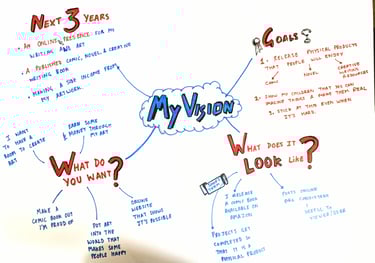 NEXT 3 YEARS
• AN ONLINE PRESENCE FOR MY
WRITING AND ART
• A PUBLISHED COMIC, NOVEL, & CREATIVE
WRITING BOOK
• MAKING A SIDE INCOME FROM
MY ARTWORK
GOALS!
1. RELEASE PHYSICAL PRODUCTS
THAT PEOPLE WILL ENJOY
COMIC
NOVEL
CREATIVE
WRITING
RESOURCES
2. SHOW MY CHILDREN THAT WE CAN
IMAGINE THINGS & MAKE THEM REAL
3. STICK AT THIS EVEN WHEN
IT'S HARD.
MY VISION
WHAT DO
YOU WANT?
I WANT
TO HAVE A
ROOM TO CREATE
ART
EARN SOME
MONEY THROUGH MY
ART
MAKE A
COMIC BOOK OUT
I'M PROUD OF
PUT ART
INTO THE
WORLD THAT
MAKES SOME
PEOPLE HAPPY
WEBSITE
THAT SHOWS
IT'S POSSIBLE
WHAT DOES IT
LOOK LIKE?
I RELEASE
A COMIC BOOK
AVAILABLE ON
AMAZON
PROJECTS GET
COMPLETED SO
THAT IT IS A
PHYSICAL PRODUCT
POSTS ONLINE
ARE CONSISTENT
&
USEFUL TO
VIEWER/USER